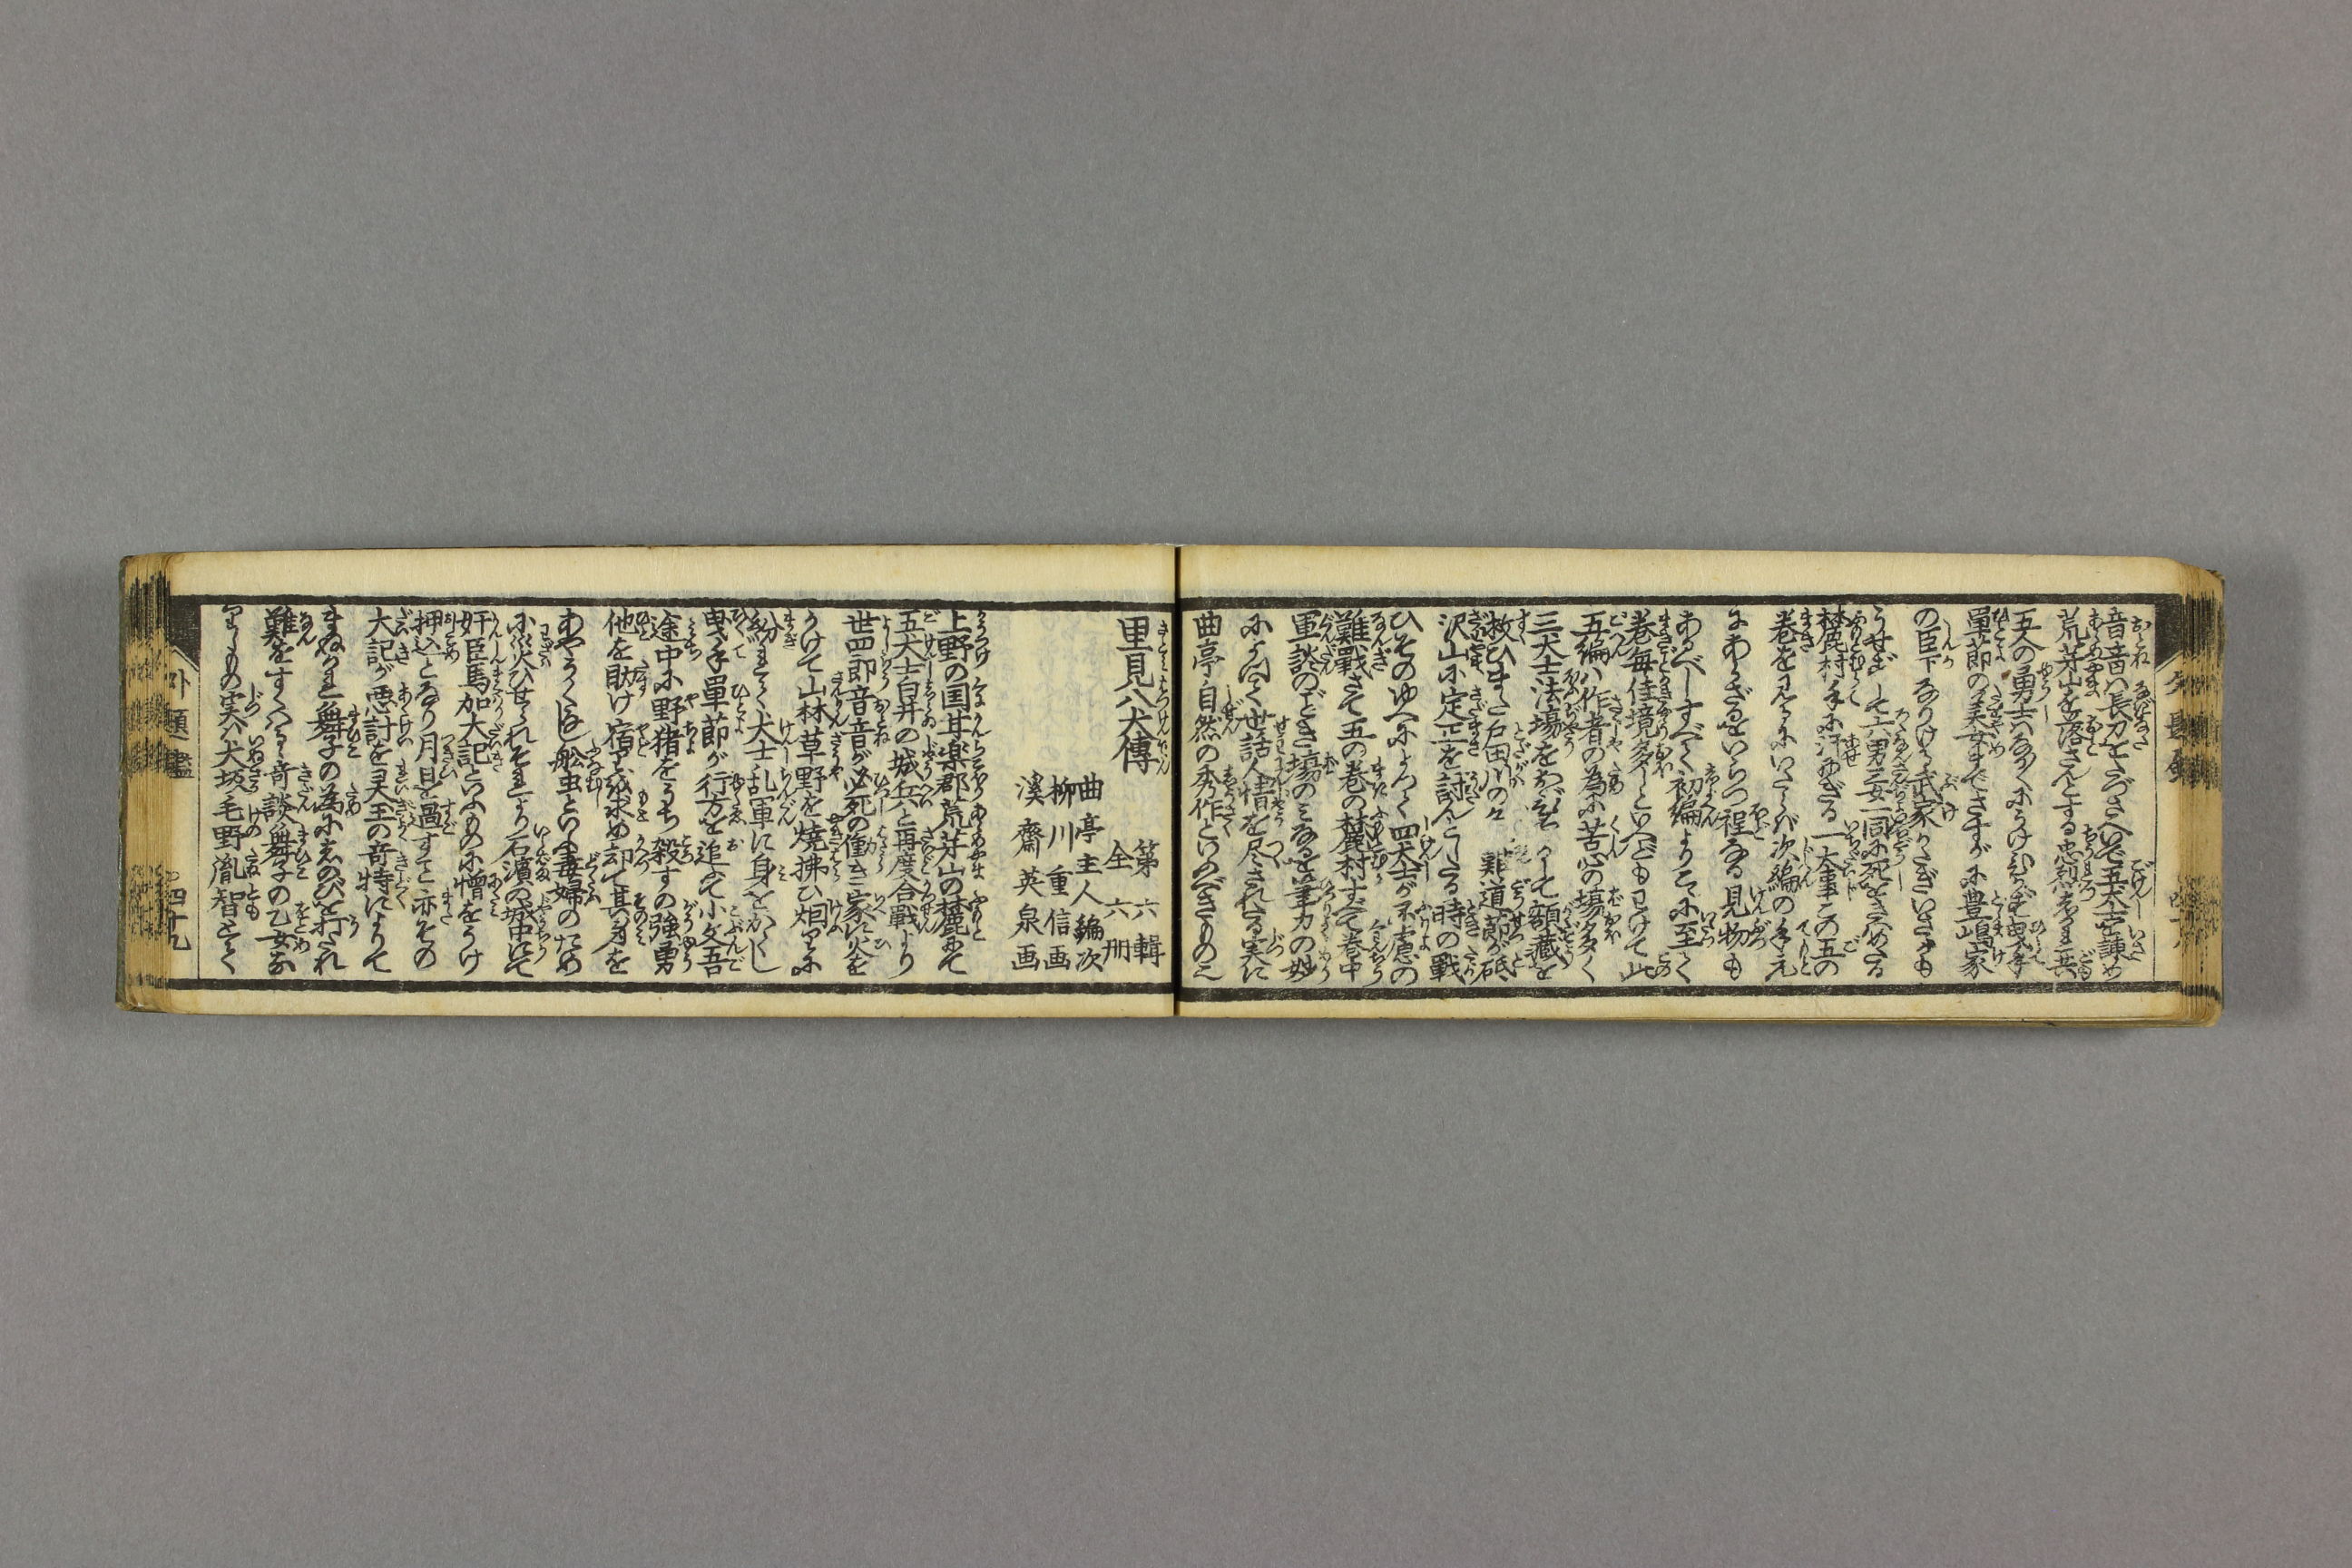 音音は長刀をたづさへいで五犬士を諌め
荒芽山を落さんとする忠烈
五人の勇士
單節の美女までさすがに豊嶋家
の臣下なりける武家かたぎいさぎ
して六男三女一同に死をきはめたる
麓村手に汗にぎる一大事この五の
巻を見るにいたらバ次編の手元
にあらざるをいらつ程なる見物も
あるべしすべて初編よりこゝに至て
巻毎佳境多しといへどもわけて此
五編ハ作者の為に苦心の場多く
三犬士法場をおどろかして額藏を
救ひまた戸田川の々難道節が砥
沢山に定正を討んとしたる時の戰
ひそのゆへによつて四犬士が不慮の
難戰さて五の巻の麓村すべて巻中
軍談のごとき場のミなるを筆力の妙
によつて世話人情を尽されたる実に
曲亭自然の秀作といふべきもの也
里見八犬傳
第六輯
全六册
曲亭主人編次
柳川重信画
溪齋英泉画
上野の国甘楽郡荒芽山の麓にて
五犬士白井の城兵と再度合戰より
世四郎音音が必死の働き家に火を
うけて山林草野を燒拂ひ烟りに
紛れて犬士乱軍に身をかくし
曳手單節が行方を追ふて小文吾
途中に野猪をうち殺すの強勇
他を助け宿りを求め却て其身を
あやうくし舩虫といふ毒婦のため
に災ひせられそれより石濱の城中にて
奸臣馬加大記といふものに憎をうけ
押込となり月日を過すこと亦その
大記が悪計を灵玉の奇特によりて
まぬかれ舞子の為にしのびを打れ
難をすくへる奇談舞子の乙女な
りしもの実ハ犬坂毛野胤智にして
外題鑑
四十九